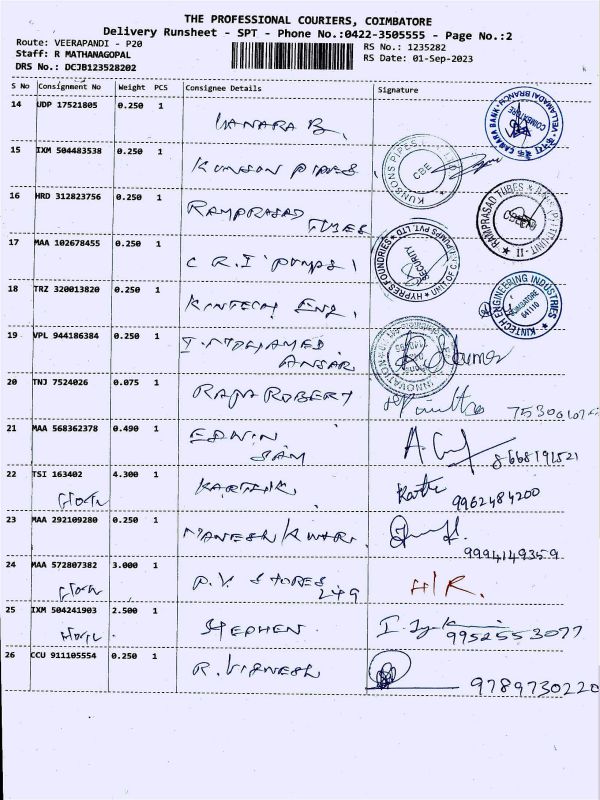 THE PROFESSIONAL COURIERS, COIMBATORE
Delivery Runsheet - SPT - Phone No.:0422-3505555 - Page No.:2
Route: VEERAPANDI - P20
RS No.: 1235282
Staff: R MATHANAGOPAL
RS Date: 01-Sep-2023
DRS No.: DCJB123528202
S No Consignment No Weight PCS Consignee Details Signature
14 UDP 17521805 0.250 1 CANARA B.
CANARA BANK
COIMBATORE
15 IXM 504483538 0.250 1 KUNSON PIPES
KUNSONS PIPES
CBE
16 HRD 312823756 0.250 1 RAMPRASAD
TUBES
RAMPRASAD TUBES
UNIT - II
17 MAA 102678455 0.250 1 C.R.I PUMPS 1
HYPRES FOUNDRIES
PUMPS PVT. LTD
SECURITY
18 TRZ 320013820 0.250 1 KINTECH ENG.
KINTECH ENGINEERING INDUSTRIES
COIMBATORE
641110
19 VPL 944186384 0.250 1 I. MOHAMED
ANSAR
INNOVATION
20 TNJ 7524026 0.075 1 RAJA ROBERT
21 MAA 568362378 0.490 1 EDWIN
SAM
8668191521
22 TSI 163402 4.300 1 KARTHIK
9962484200
23 MAA 292109280 0.250 1 MANESH KUMAR.
9994149359
24 MAA 572807382 3.000 1 P.V STORES
249
H/R.
25 IXM 504241903 2.500 1 STEPHEN.
9952553077
26 CCU 911105554 0.250 1 R. VIGNESH
9789730220